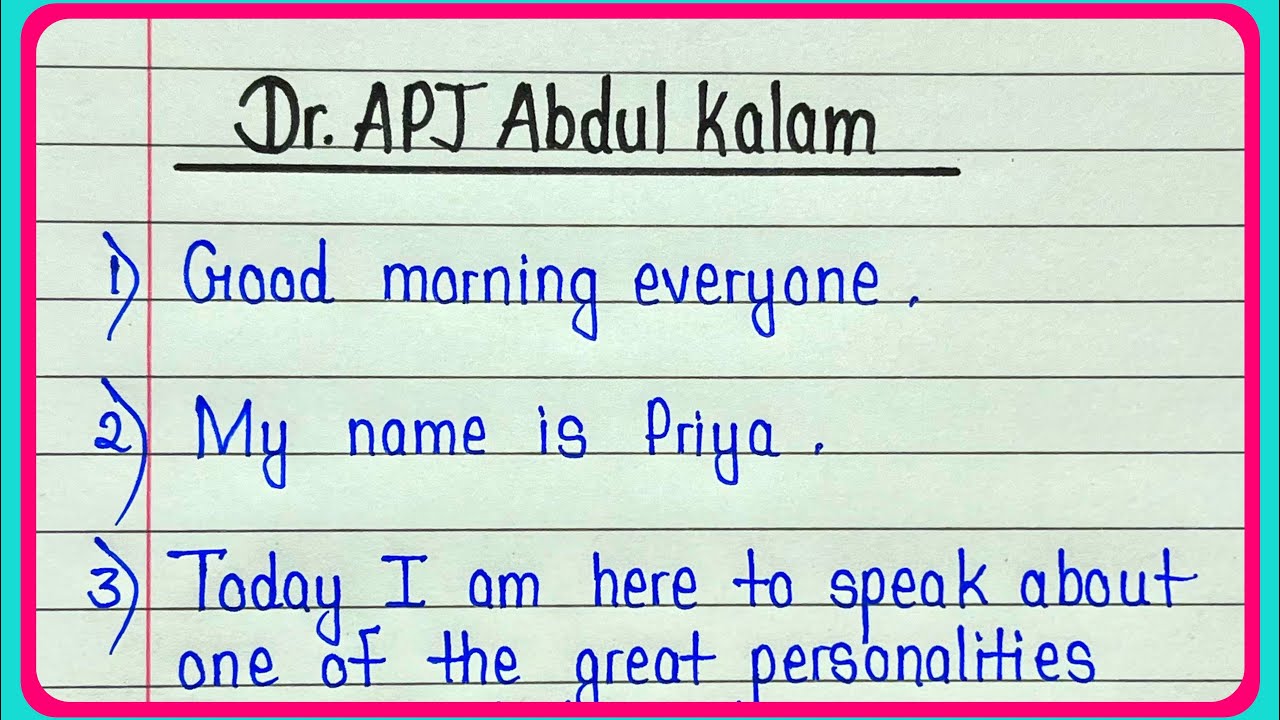 Dr. APJ Abdul Kalam
1) Good morning everyone.
2) My name is Priya.
3) Today I am here to speak about
one of the great personalities